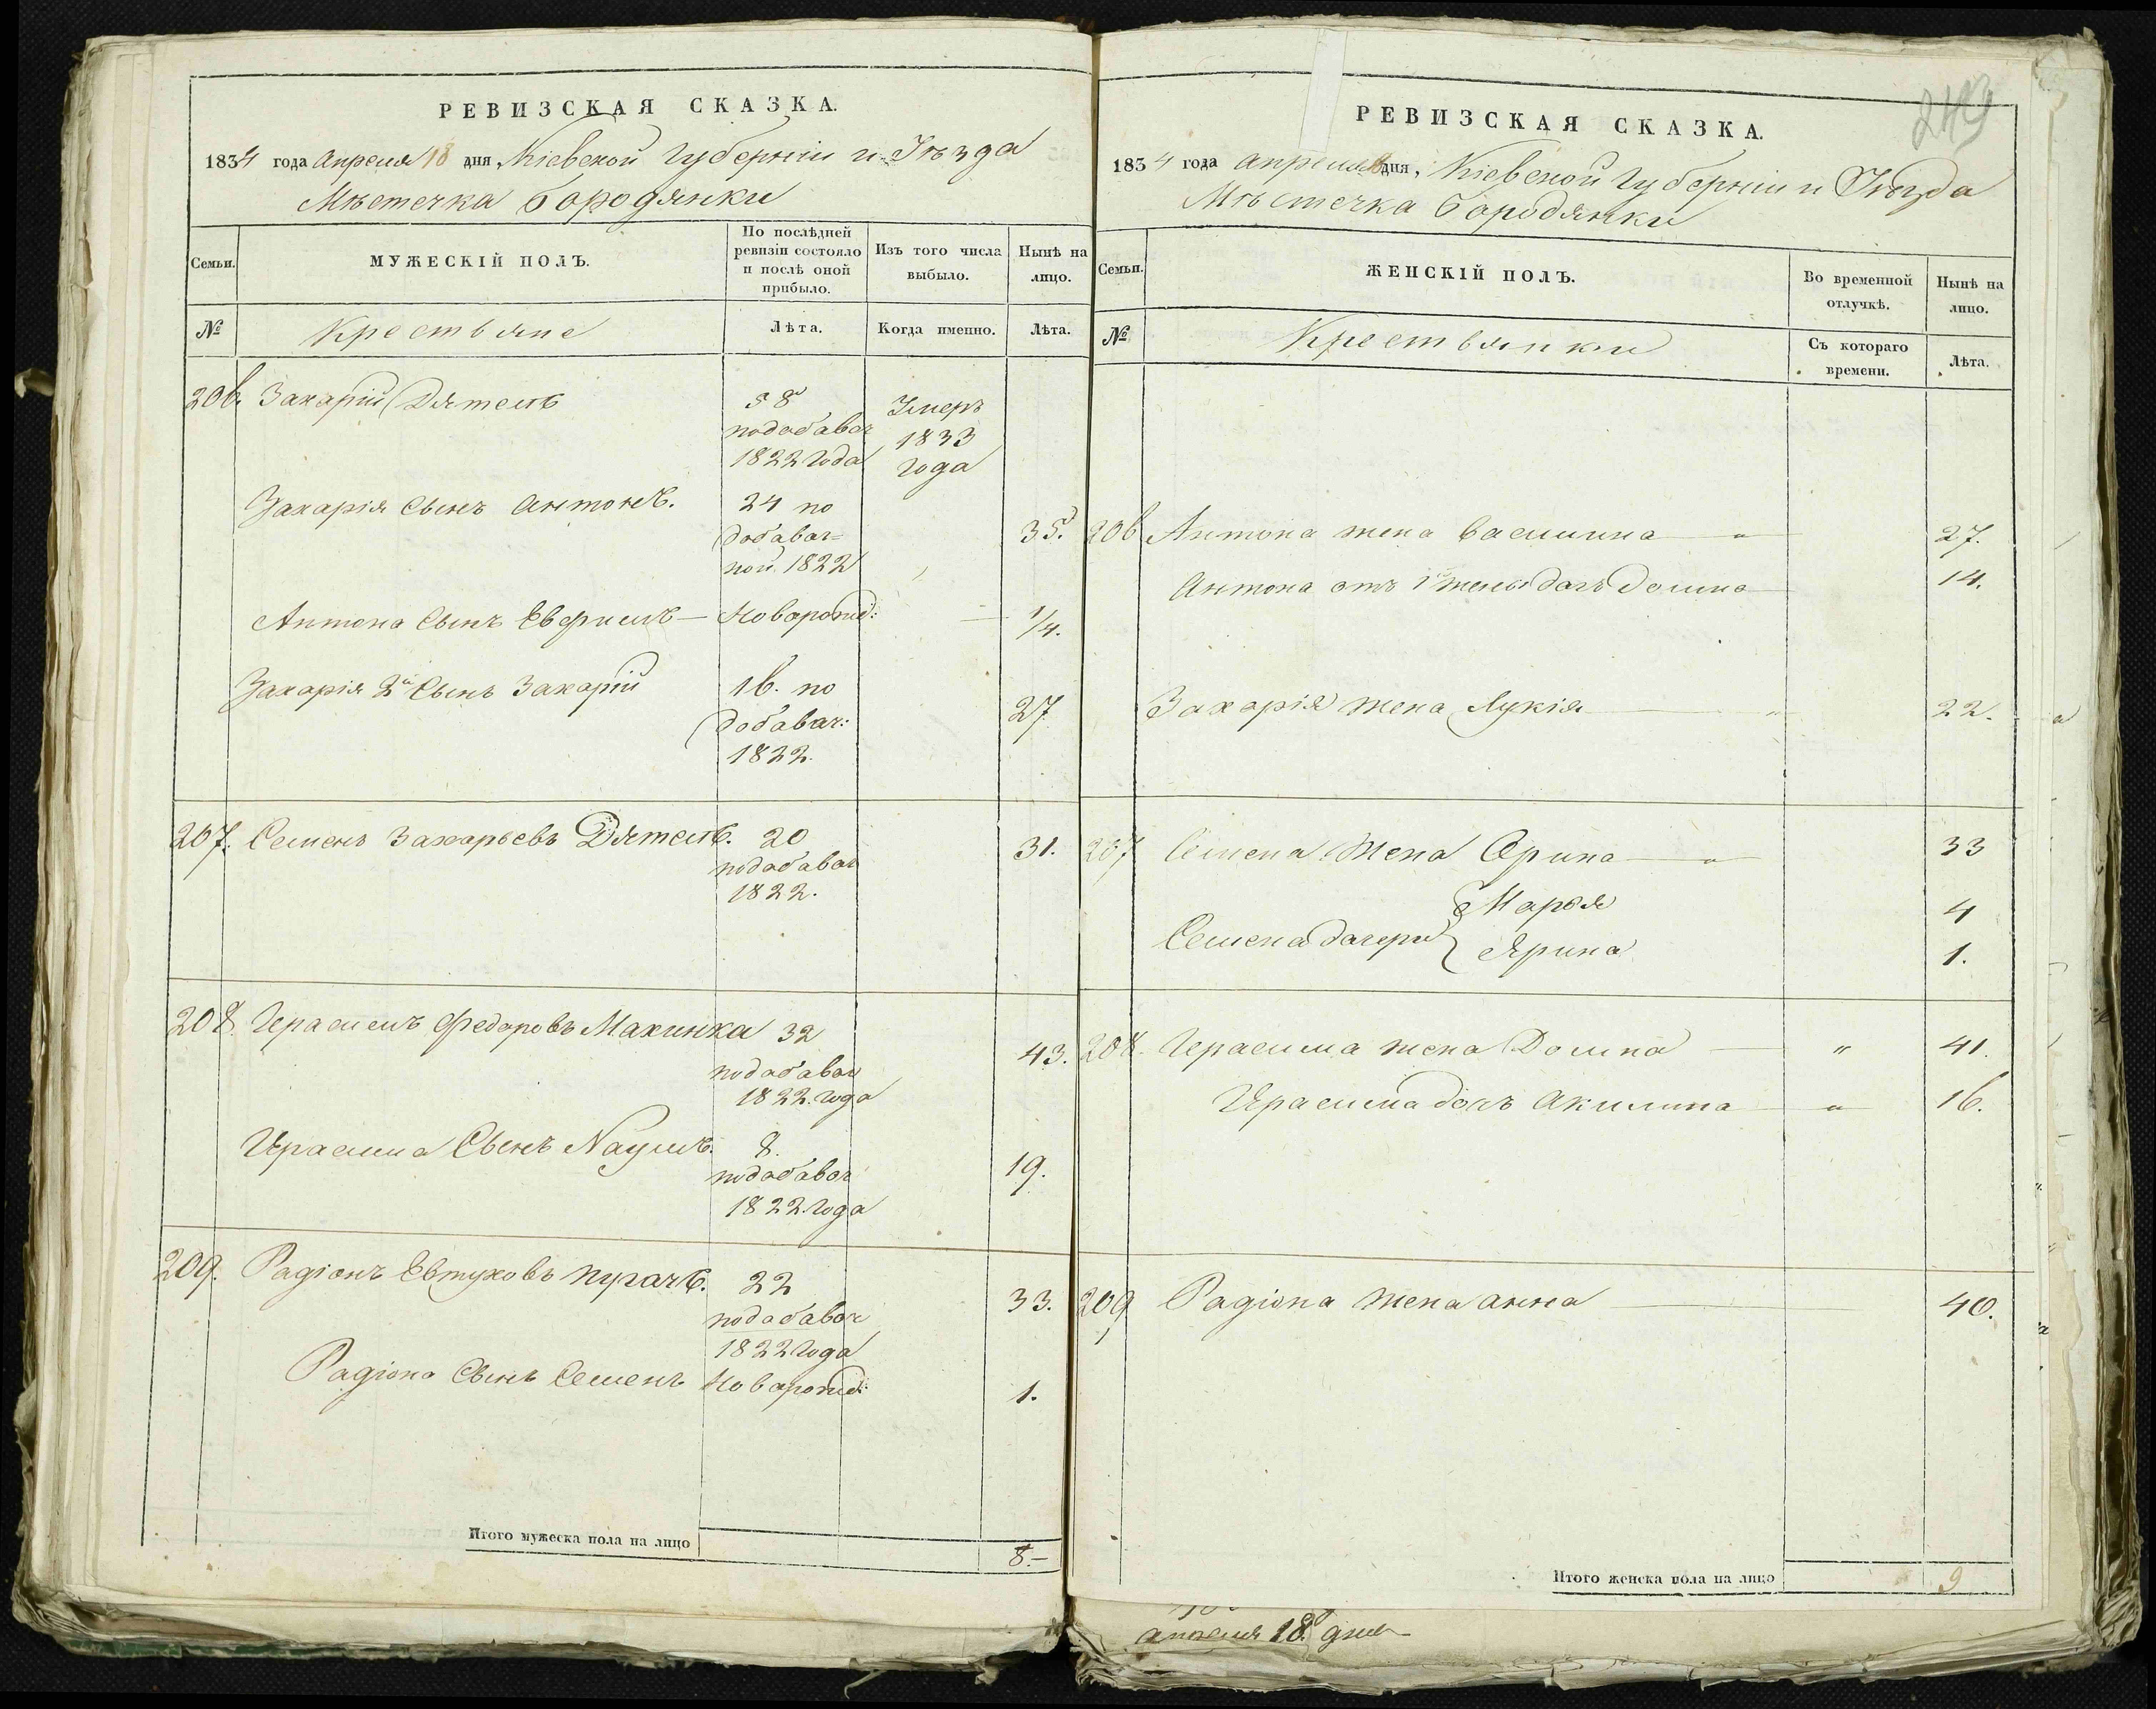 РЕВИЗСКАЯ СКАЗКА.
1834 года Апреля 18 дня, Кіевской Губерніи и Уѣзда
Мѣстечка Бородянки
Семьи.
МУЖЕСКІЙ ПОЛЪ.
По послѣдней ревизіи состояло и послѣ оной прибыло.
Изъ того числа выбыло.
Нынѣ на лицо.
№
Крестьяне
Лѣта.
Когда именно.
Лѣта.
206. Захарій Дятелъ 58 Умеръ
подобавоч 1833
1822 года года
Захарія Сынъ Антонъ. 24 по 35.
добавоч=
ной 1822
Антона Сынъ — Новорожд: — 1/4.
Захарія 2й Сынъ Захарій 16. по 27
добавоч:
1822.
207. Семенъ Захарьевъ Дятелъ. 20 31.
подобавоч
1822.
208. Герасимъ Федоровъ Макинка 32 43.
подобавоч
1822. года
Герасима Сынъ Наумъ. 8. 19.
подобавоч
1822. года
209. Радіонъ Евтуховъ Пугачъ. 22 33.
подобавоч
1822 года
Радіона Сынъ Семенъ Новорожд: 1.
Итого мужеска пола на лицо 8.—
249
РЕВИЗСКАЯ СКАЗКА.
1834 года апреля 18 дня, Кіевской Губерніи и Уѣзда
Мѣстечка Бородянки
Семьи.
ЖЕНСКІЙ ПОЛЪ.
Во временной отлучкѣ.
Нынѣ на лицо.
№
Крестьянки
Съ котораго времени.
Лѣта.
206 Антона жена Василина — " 27.
Антона отъ 1й жены дочь Домна 14.
Захарія жена Лукія — " 22.
207 Семена Жена Орина — " 33
Марья 4
Семена дочери
Ярина 1.
208. Герасима жена Домна — " 41.
Герасима дочь Акилина — " 16.
209 Радіона жена анна — 40.
Итого женска пола на лицо 9
апреля 18. дня